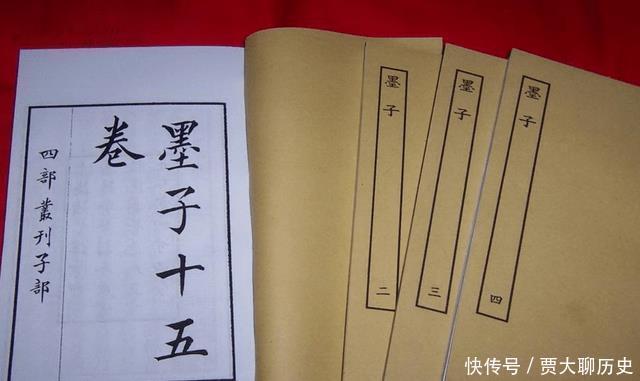 墨子十五
卷
四部叢刊子部
墨子
二
墨子
三
墨子
四
快传号/贾大聊历史